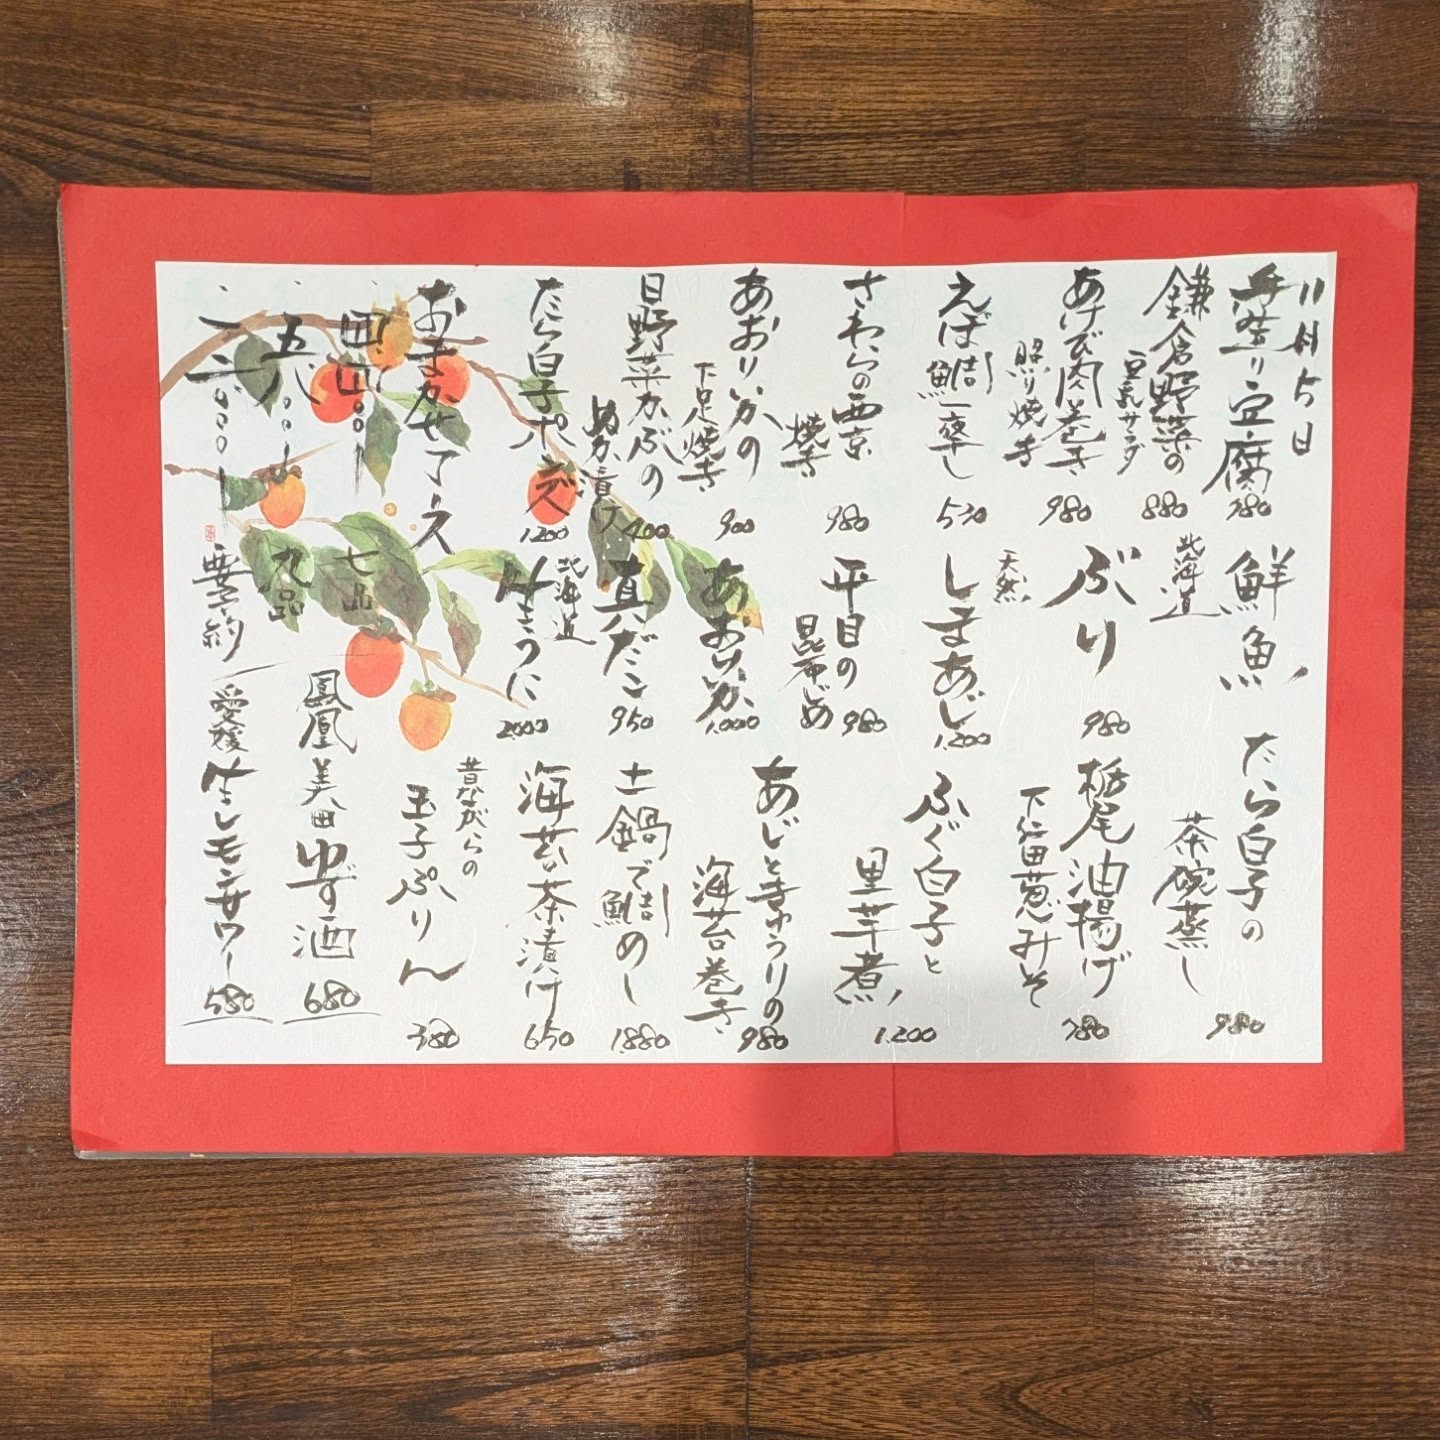 11月5日
手造り豆腐
780
鎌倉野菜の
豆乳サラダ
880
あけび肉巻き
照り焼き
980
えぼ鯛一夜干し
530
さわらの西京
焼き
980
あおりいかの
下足焼き
900
日野菜かぶの
ぬか漬け
400
たら白子ポンズ
1200
おまかせコース
四四〇〇
七品
五八〇〇
九品
要予約
鮮魚
北海道
ぶり
980
天然
しまあじ
1.200
平目の
昆布じめ
980
あおりいか
1.000
真だこ
950
北海道
生うに
2000
たら白子の
茶碗蒸し
980
栃尾油揚げ
下仁田葱みそ
780
ふぐ白子と
里芋煮
1.200
あじときゅうりの
海苔巻き
980
土鍋で鯛めし
1.880
海苔茶漬け
650
昔ながらの
玉子ぷりん
380
鳳凰美田
ゆず酒
680
愛媛
生レモンサワー
580